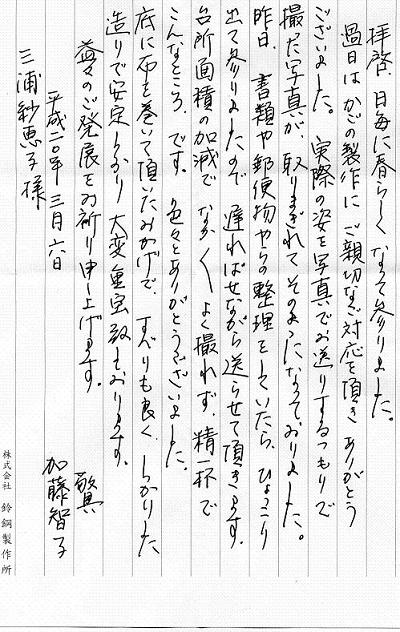 拝啓、日毎に春らしくなって参りました。
過日はかごの製作に ご親切なご対応を頂き ありがとう
ございました。 実際の姿を写真でお送りするつもりで
撮った写真が、取りまぎれてそのままになっておりました。
昨日、書類や郵便物やらの整理をしていたら、ひょっこり
出て参りましたので 遅ればせながら送らせて頂きます。
台所面積の加減で なかなかよく撮れず、精一杯で
こんなところ、です。 色々とありがとうございました。
底に布を巻いて頂いたおかげで、すべりも良く、しっかりした
造りで安定しており 大変重宝致しております。
益々のご発展をお祈り申し上げます。
敬具
平成二〇年 三月六日
加藤智子
三浦紗恵子様
株式会社 鈴鋼製作所